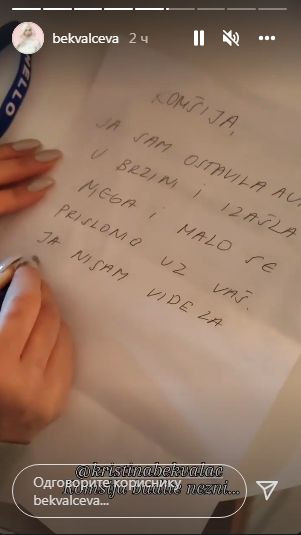 bekvalceva 2 ч
HELLO
KOMŠIJA,
JA SAM OSTAVILA AU
U BRZINI I IZAŠLA
NJEGA I MALO SE
PRISLONIO UZ VAŠ.
JA NISAM VIDELA
@kristinabekvalac
Komšija budite nežni...
Одговорите кориснику
bekvalceva...